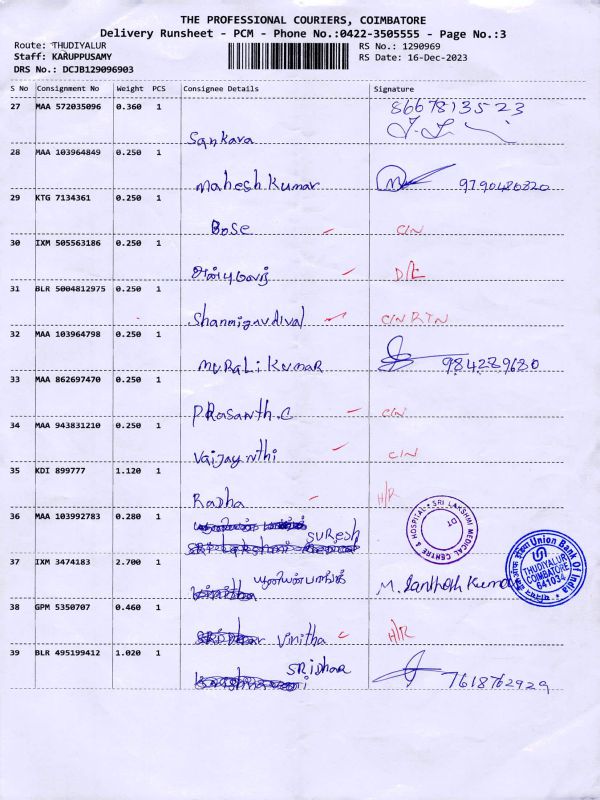 THE PROFESSIONAL COURIERS, COIMBATORE
Delivery Runsheet - PCM - Phone No.:0422-3505555 - Page No.:3
Route: THUDIYALUR
RS No.: 1290969
Staff: KARUPPUSAMY
RS Date: 16-Dec-2023
DRS No.: DCJB129096903
S No Consignment No Weight PCS Consignee Details Signature
27 MAA 572035096 0.360 1
8667813523
Sankara
28 MAA 103964849 0.250 1
Mahesh Kumar 9790480820
29 KTG 7134361 0.250 1
Bose C/N
30 IXM 505563186 0.250 1
D/L
31 BLR 5004812975 0.250 1
C/N RTN
32 MAA 103964798 0.250 1
MURALI KUMAR 984289680
33 MAA 862697470 0.250 1
PRasanth.C C/N
34 MAA 943831210 0.250 1
Vaijaynthi C/N
35 KDI 899777 1.120 1
Radha H/R
36 MAA 103992783 0.280 1
SuResh
SRI LAKSHMI MEDICAL CENTRE & HOSPITAL
10
37 IXM 3474183 2.700 1
யூனியன்பாங்க் M. Santhosh Kumar
Union Bank Of India
THUDIYALUR
COIMBATORE
641034
38 GPM 5350707 0.460 1
Vinitha H/R
39 BLR 495199412 1.020 1
SRidhar
7618762929